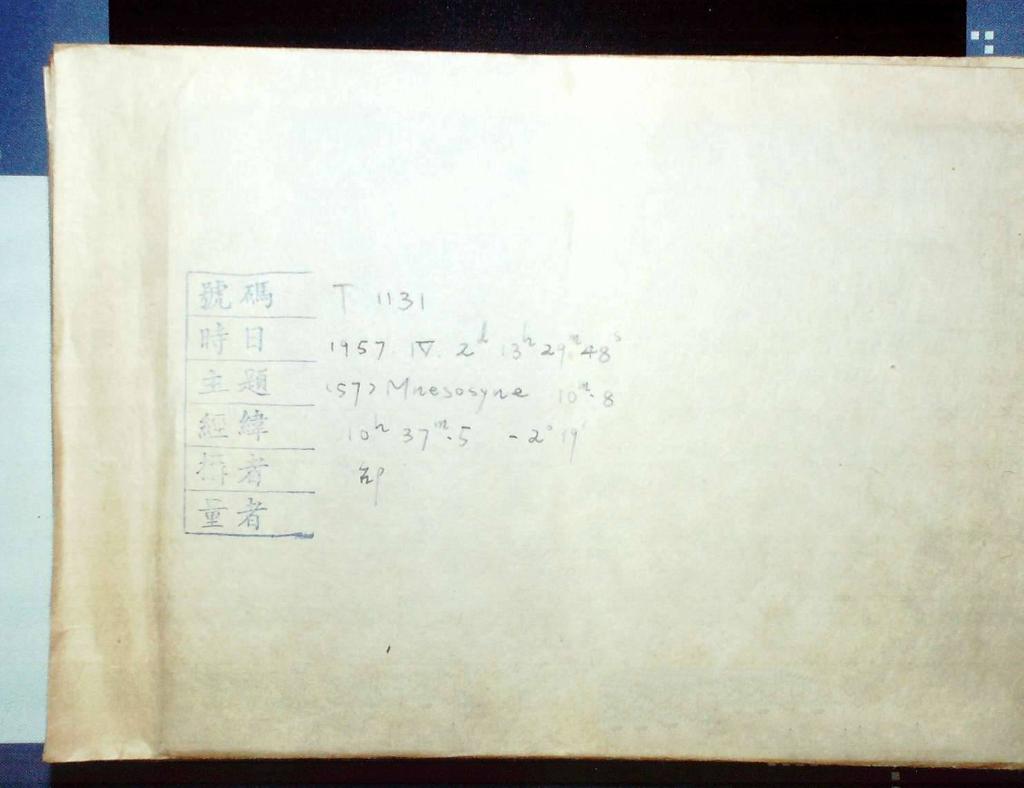 號碼 T 1131
時日 1957 IV. 2ᵈ 13ʰ 29ᵐ 48ˢ
主題 (57) Mnesosyne 10ᵐ.8
經緯 10ʰ 37ᵐ.5 -2° 19'
攝者
量者